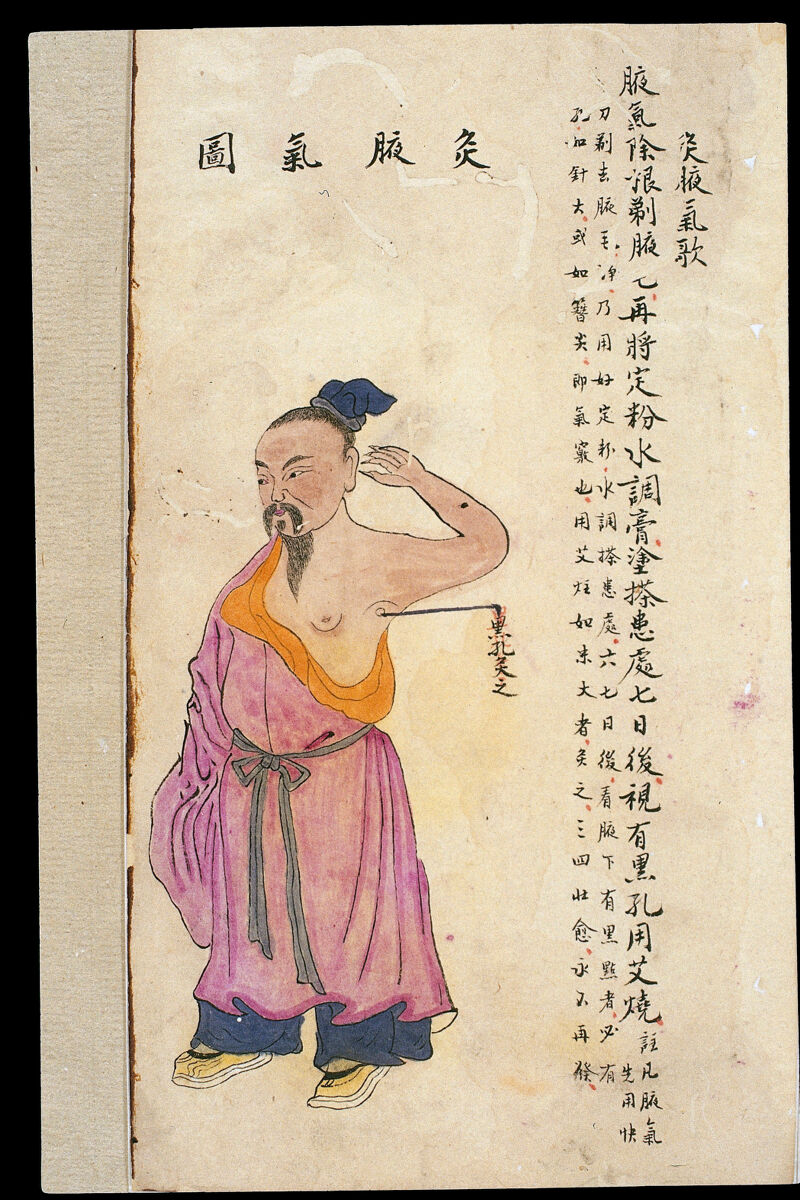 灸腋氣歌
腋氣除根剃腋毛再將定粉水調膏塗搽患處七日後視有黑孔用艾燒
註凡腋氣
先用快
刀剃去腋毛淨乃用好定粉水調搽患處六七日後看腋下有黑點者必有
孔如針大或如簪尖即氣竅也用艾炷如米大者灸之三四壯愈永不再發
灸腋氣圖
黑孔灸之